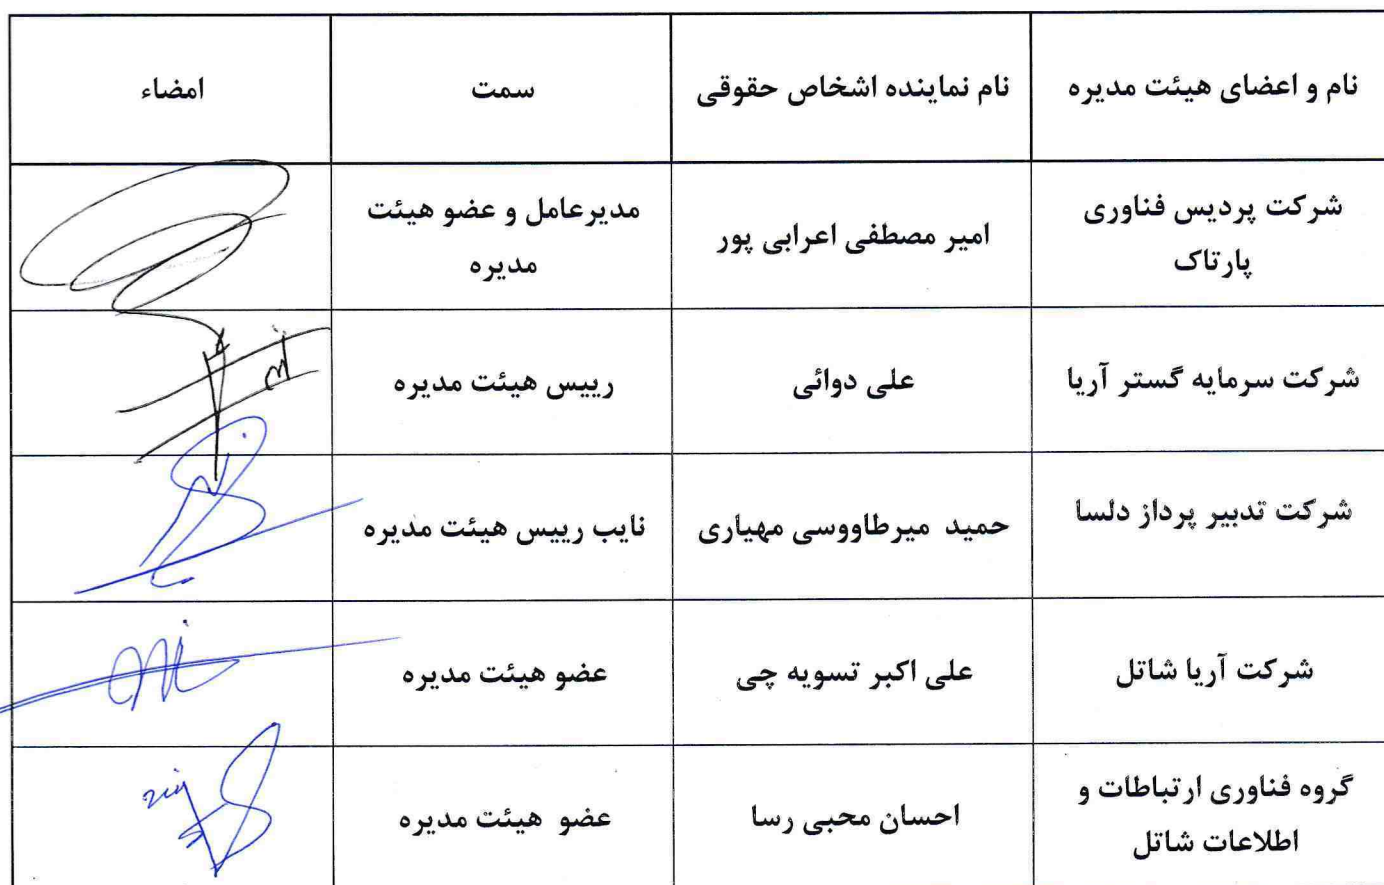 نام و اعضای هیئت مدیره
نام نماینده اشخاص حقوقی
سمت
امضاء
شرکت پردیس فناوری
پارتاک
امیر مصطفی اعرابی پور
مدیرعامل و عضو هیئت
مدیره
شرکت سرمایه گستر آریا
علی دوائی
رییس هیئت مدیره
شرکت تدبیر پرداز دلسا
حمید میرطاووسی مهیاری
نایب رییس هیئت مدیره
شرکت آریا شاتل
علی اکبر تسویه چی
عضو هیئت مدیره
گروه فناوری ارتباطات و
اطلاعات شاتل
احسان محبی رسا
عضو هیئت مدیره